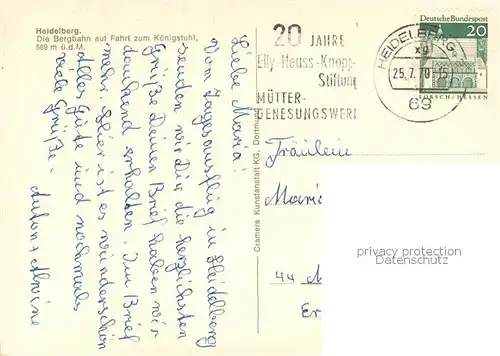 Heidelberg.
Die Bergbahn auf Fahrt zum Königstuhl,
569 m ü.d.M.
Liebe Maria!
Vom Tagesausflug in Heidelberg
senden wir Dir die herzlichsten
Grüße Deinen Brief haben wir
dankend erhalten. Im Brief
mehr. Hier ist es wunderschön
Alles Gute und nochmals
viele Grüße.
Anton + Alwine
Cramers Kunstanstalt KG, Dortmund
20 JAHRE
Elly-Heuss-Knapp-
Stiftung
MÜTTER-
GENESUNGSWERK
HEIDELBERG
xg
25.7.70-15
69
Deutsche Bundespost
20
LORSCH/HESSEN
Fräulein
Maria
44 M
Er
privacy protection
Datenschutz